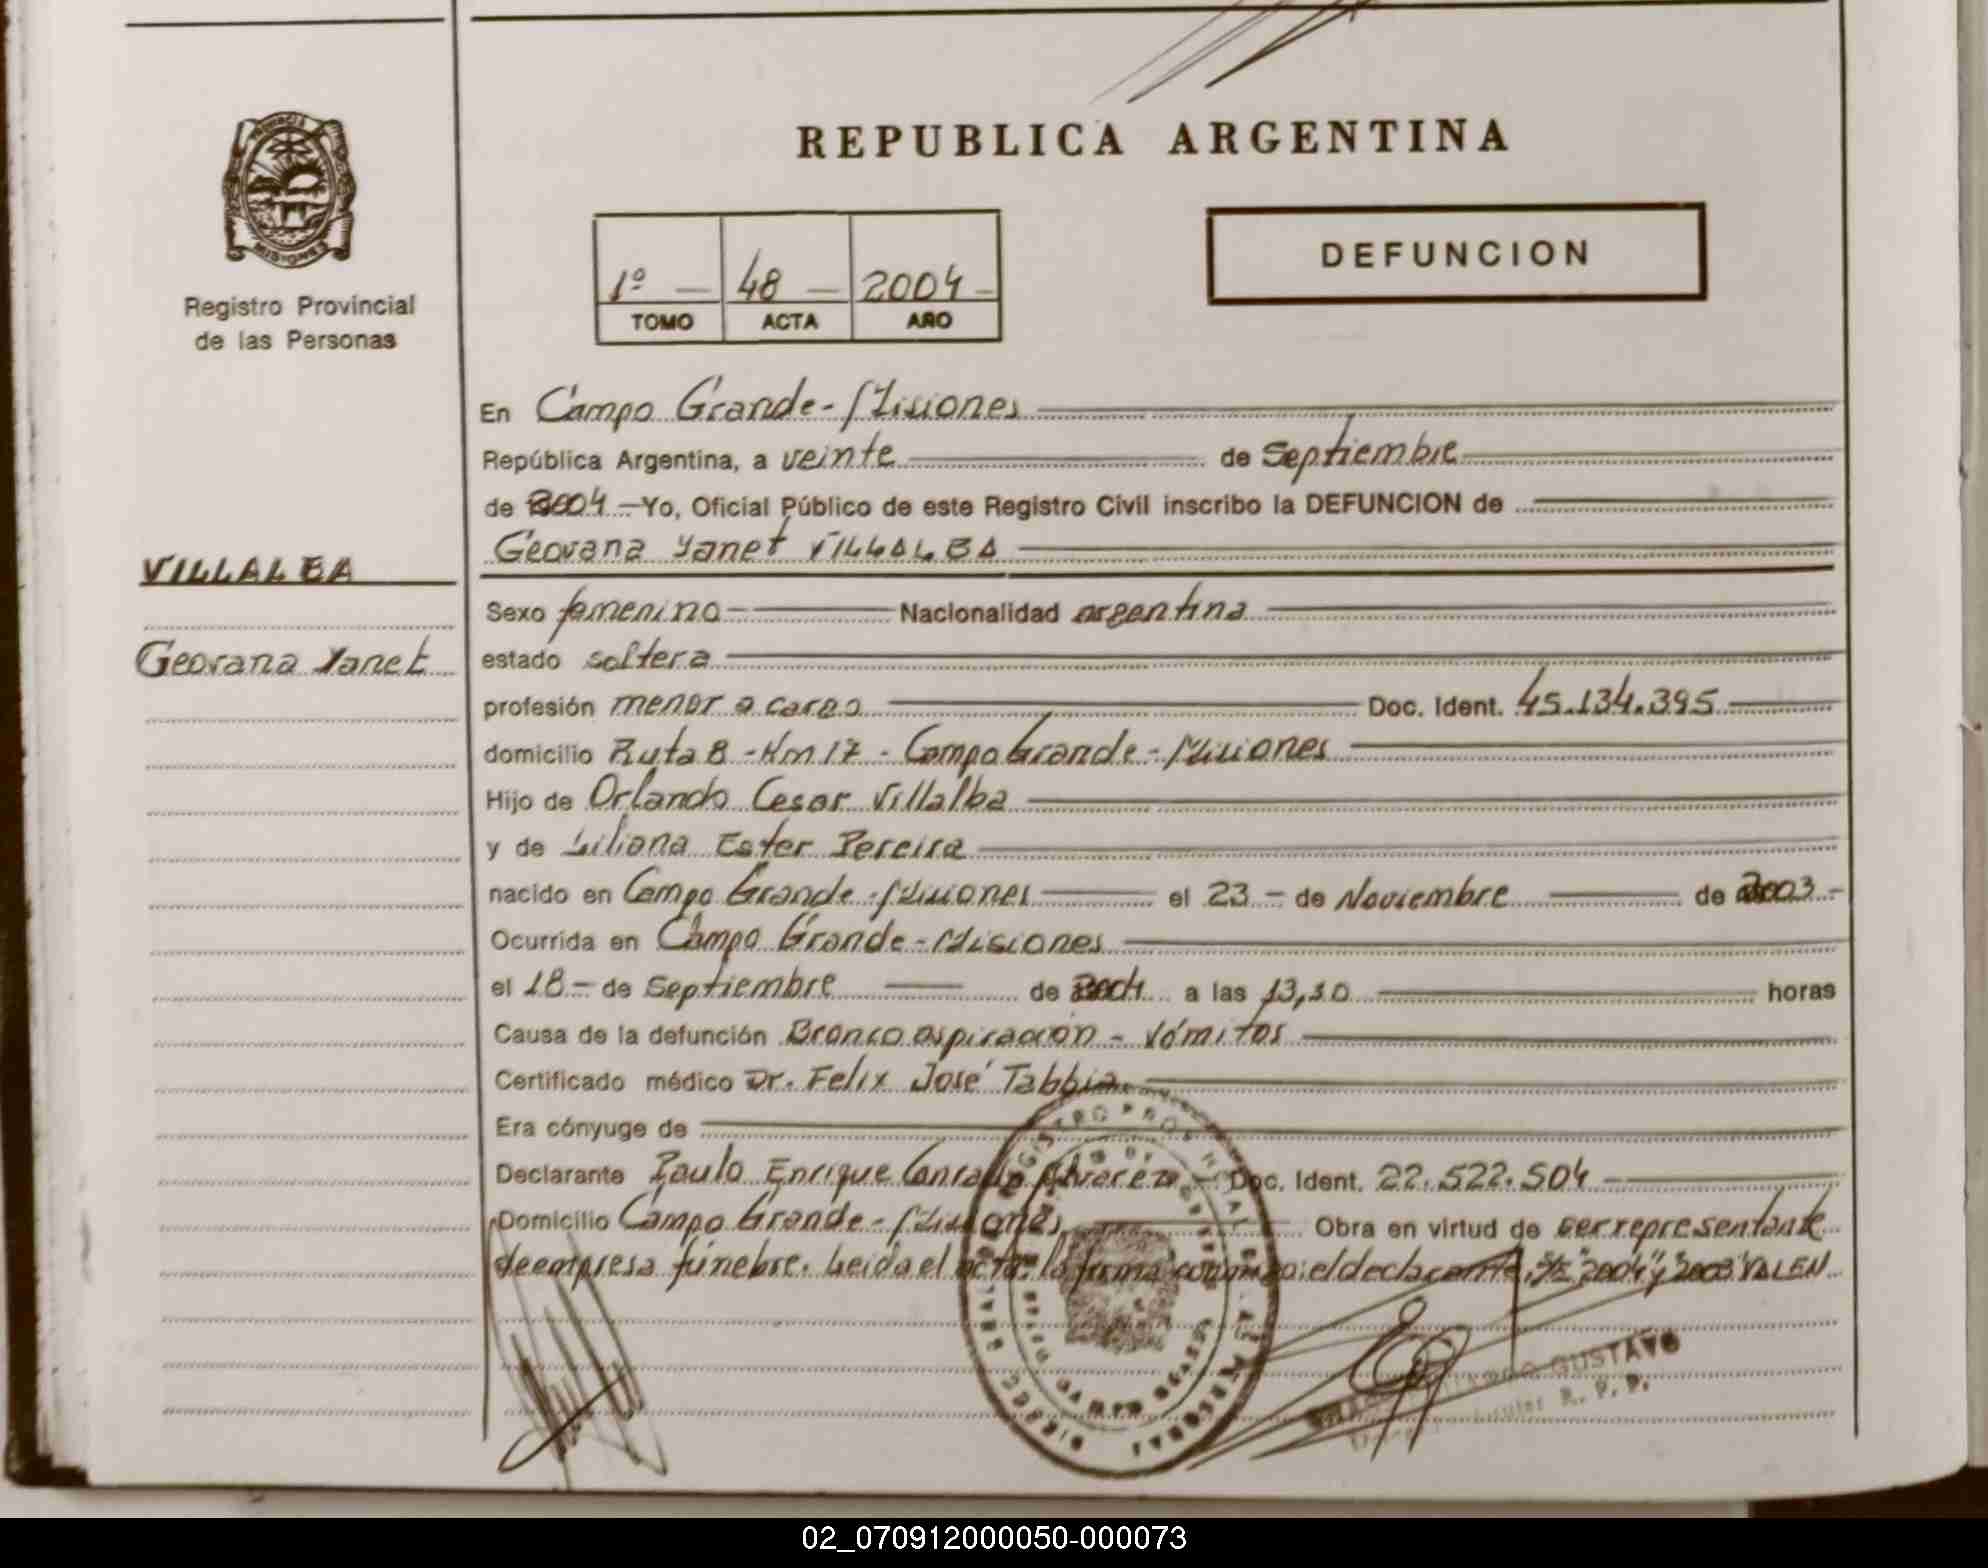 REPUBLICA ARGENTINA
MISIONES
Registro Provincial
de las Personas
1º - 48 - 2004 -
TOMO ACTA AÑO
DEFUNCION
En Campo Grande - Misiones
República Argentina, a veinte de Septiembre
de 2004 - Yo, Oficial Público de este Registro Civil inscribo la DEFUNCION de
Geovana Yanet VILLALBA
VILLALBA
Geovana Yanet
Sexo femenino - Nacionalidad argentina
estado soltera
profesión menor a cargo Doc. Ident. 45.134.395
domicilio Ruta 8 - Km 17 - Campo Grande - Misiones
Hijo de Orlando Cesar Villalba
y de Liliana Ester Pereira
nacido en Campo Grande - Misiones el 23 - de Noviembre de 2003 -
Ocurrida en Campo Grande - Misiones
el 18 - de Septiembre de 2004 a las 13,30 horas
Causa de la defunción Bronco aspiración - Vómitos
Certificado médico Dr. Felix José Tabbia
Era cónyuge de
Declarante Paulo Enrique Conrado Alvarez - Doc. Ident. 22.522.504
Domicilio Campo Grande - Misiones Obra en virtud de ser representante
de empresa fúnebre. Leida el acta la firma conmigo el declarante, S/E "2004" y "2003" VALEN
GUSTAVO
R. P. P.
02_070912000050-000073